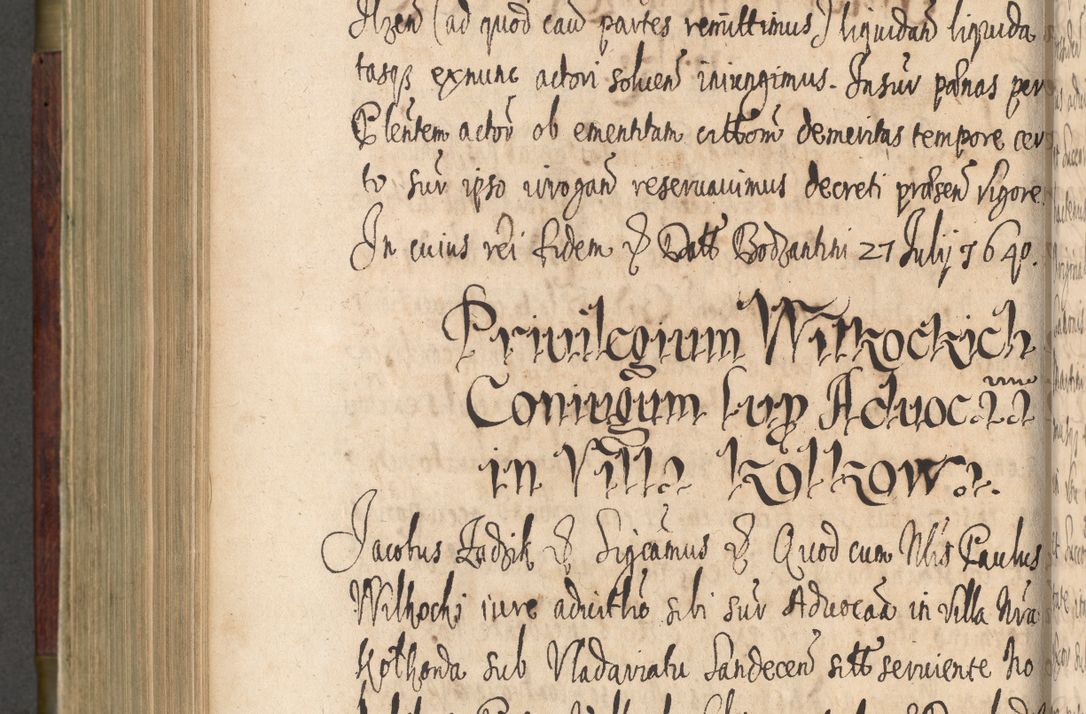 Ilzen̄ (ad quod eaū partes remittimus) liquidan̄ liquida
tasqȝ exnunc actori soluen̄ iniungimus. Insup̄ pœnas per
Plen̄tem actor̄ ob ementitam cittom̄ demeritas tempore cer
to sup̄ ipso irrogan̄ reseruauimus decreti præsen̄ vigore.
In cuius rei fidem & Datt̄ Bodzantini 27 Julij 1640.
Privilegium Wilkockich
Coniugum sup Aduoc̄aa
in Villa Kolkowa.
Jacobus Zadzik & Sig̃camus & Quod cum Nl̃is Paulus
Wilkocki iure aduithō sibi sup̄ Aduocaā in Villa Nrā
sub Vladariatu Sandecen̄ sitt̄ seruiente